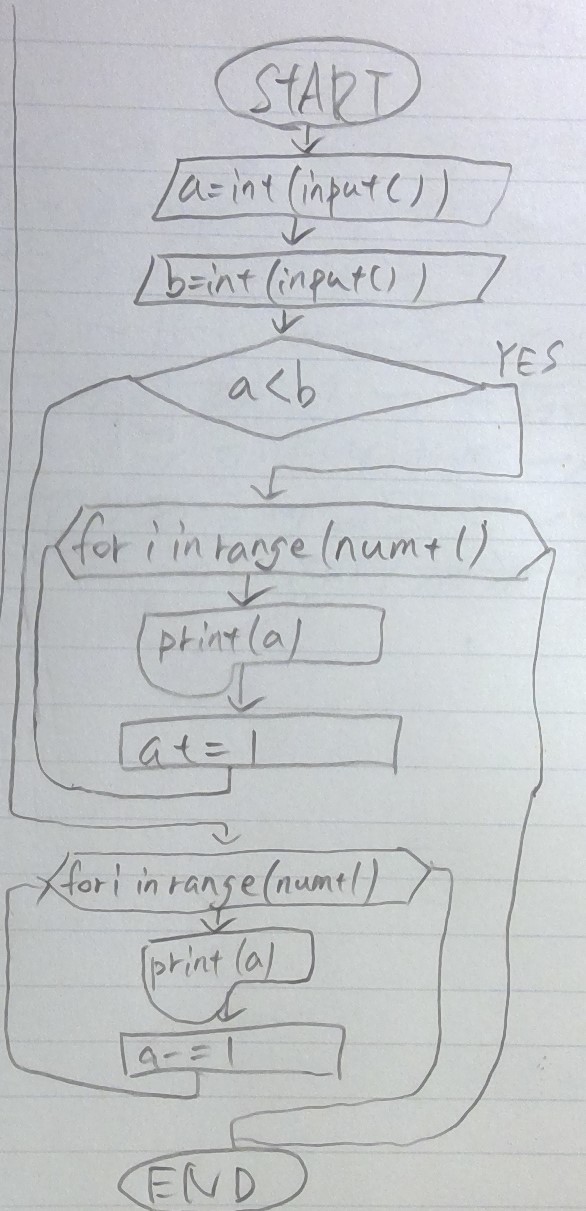 START
a=int(input())
b=int(input())
a<b
YES
for i in range(num+1)
print(a)
a+=1
for i in range(num+1)
print(a)
a-=1
END